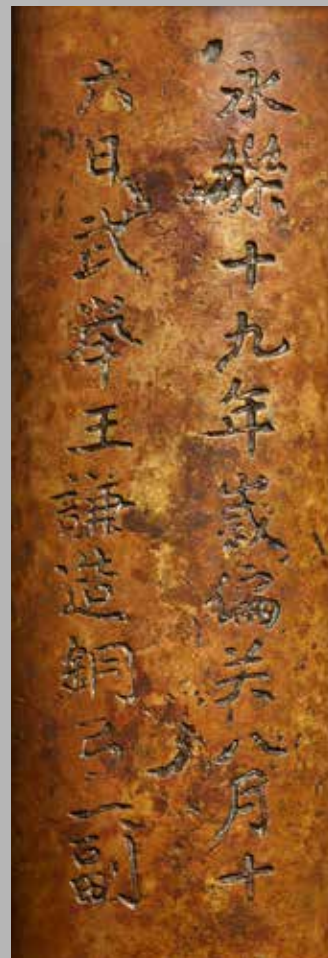 永樂十九年歲偏关八月十
六日武舉王謙造銅弓一副